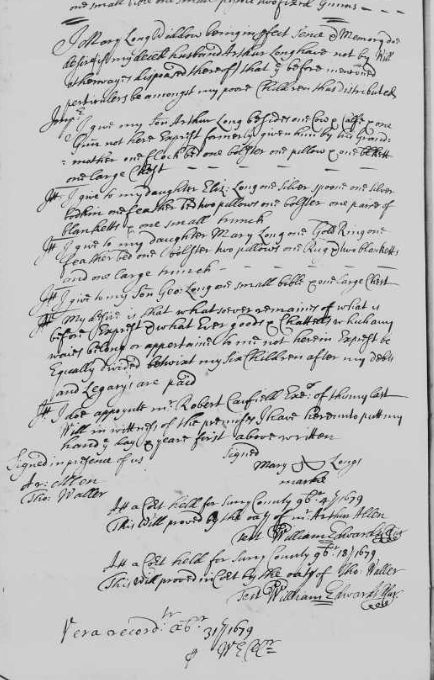 one small
I Mary Long Widdow being in pfect Sence & Memory doe
desire if my deced husband Arthur Long have not by Will
otherwayes disposed thereof that ye before menconed
perticulers be amongst my poore Children thus distributed
I give my Son Arthur Long besides one Cow & Calfe & one
Gun not here Exprest formerly given him by his Grand
mother one flock bed one bolster one pillow & one blankett
one large Chest
It I give to my daughter Eliz: Long one silver spoone one silver
bodkin one feather bed two pillows one bolster one paire of
blanketts & one small trunck
It I give to my daughter Mary Long one Gold Ring one
feather bed one bolster two pillows one Rug & two blanketts
and one large trunck
It I give to my Son Geo: Long one small bible & one large Chest
It My desire is that what soever remaines of what is
before Exprest & what Ever goods & Chattells which any
waies belong or appertaine to me not herein Exprest be
Equally divided betwixt my Six Children after my debts
and Legacys are paid
It I doe appoynte mr Robert Caufield Exr of this my last
Will in wittness of the premises I have hereunto putt my
hand ye day & yeare first above written
Signed in presence of us
Signed
Mary Long
marke
Ar: Allen
Tho: Waller
Att a Cort held for Surry County 9br 4th 1679
This Will proved by the oath of mr Arthur Allen
Test William Edwards
Att a Cort held for Surry County 9br 18th 1679
This Will proved in Cort by the oath of Tho: Waller
Test William Edwards
Vera record 31th 1679
W E